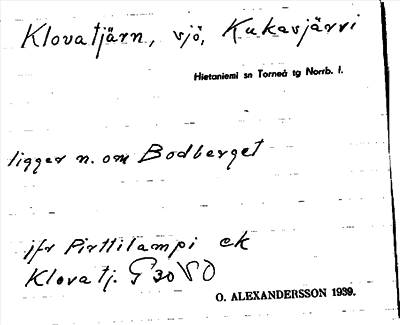 Klovatjärn, sjö, Kukasjärvi
Hietaniemi sn Torneå tg Norrb. l.
ligger n. om Bodberget
jfr Pirttilampi ek
Klovatj. G 30 V O
O. ALEXANDERSSON 1939.